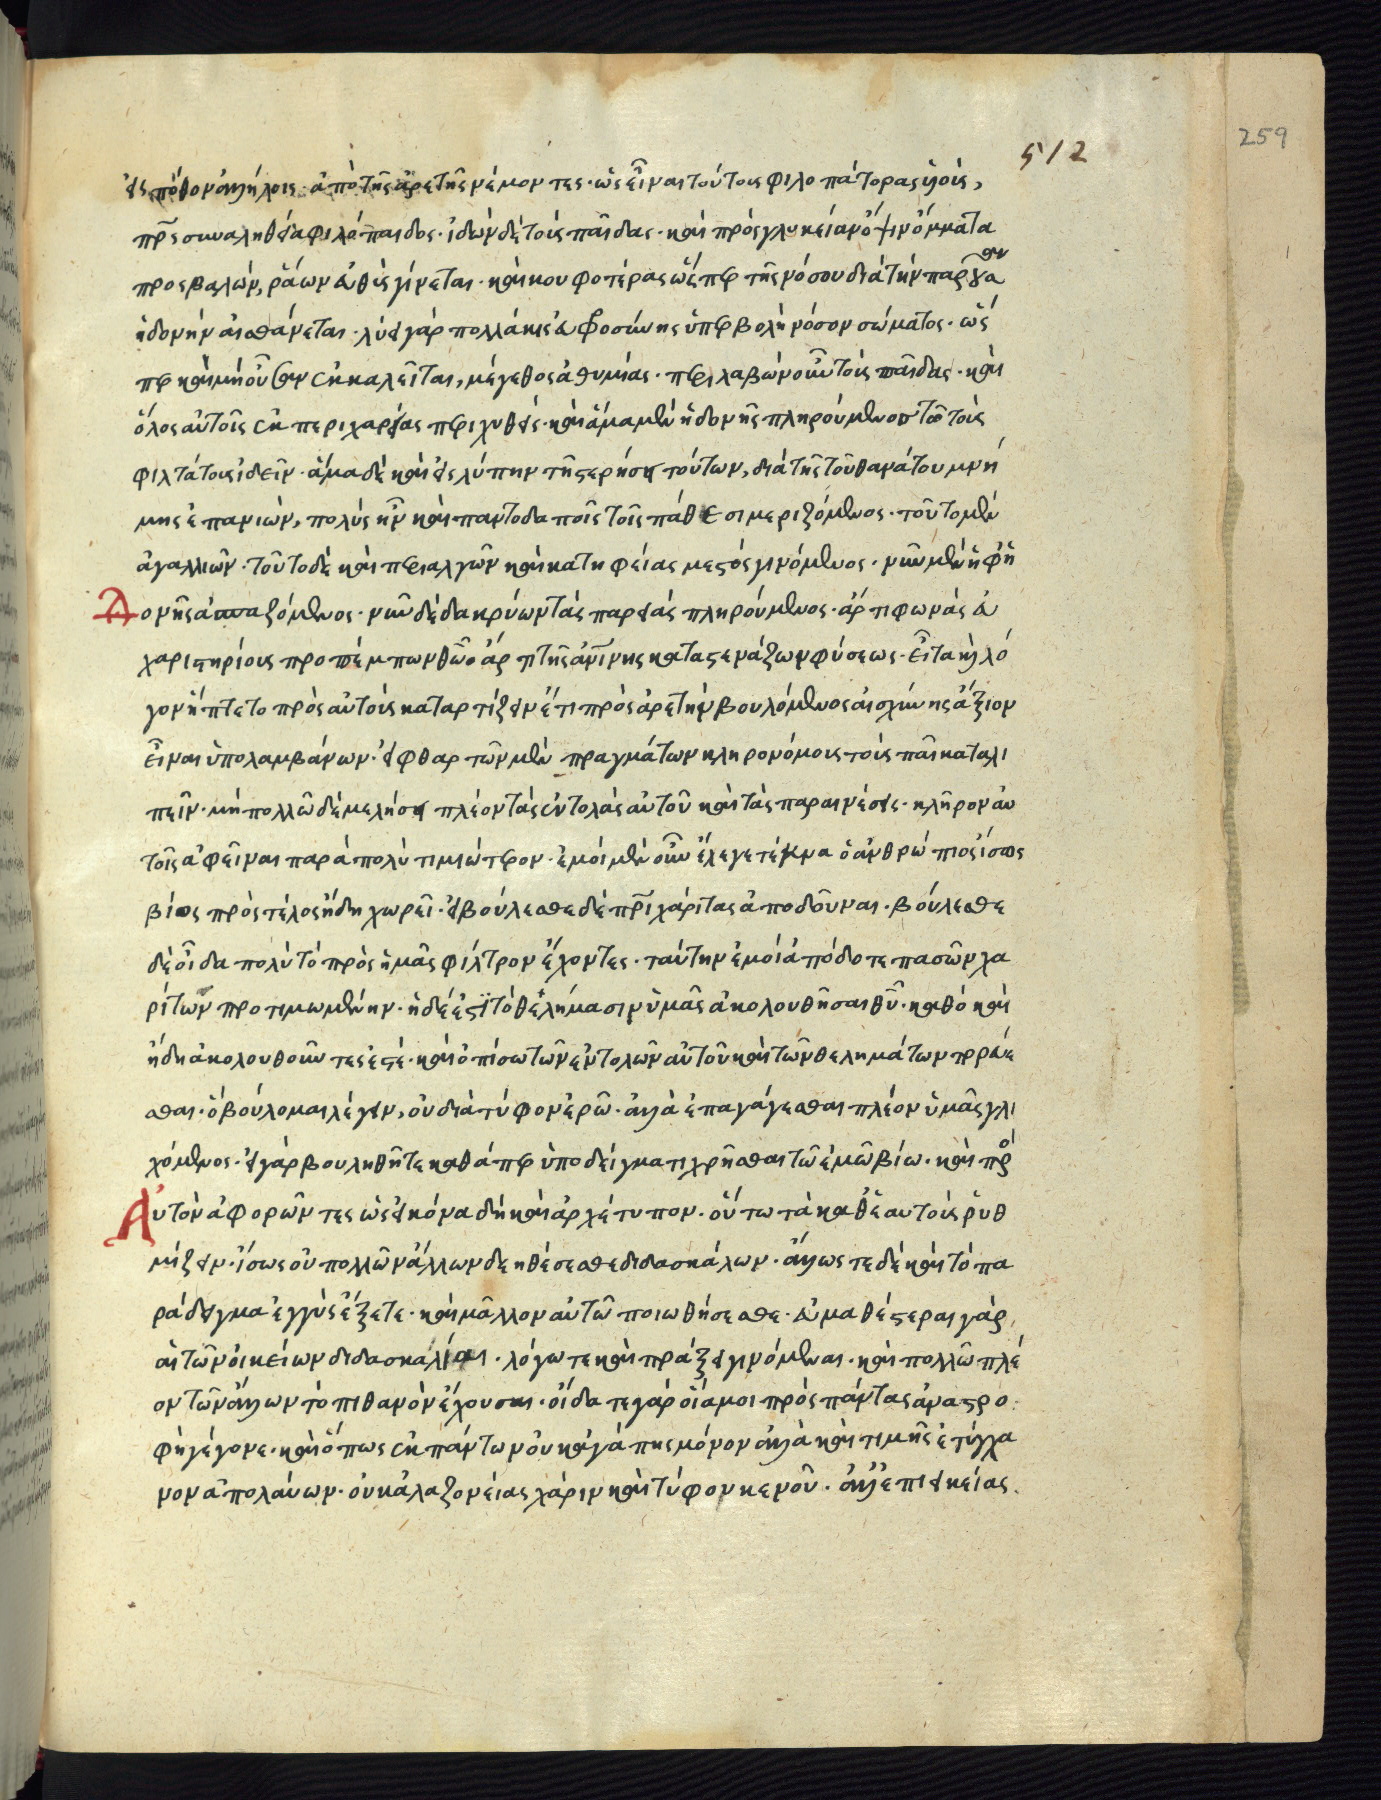 512
259
εἰς πόθον ἀλλήλοις· ἀπὸ τῆς ἀρετῆς νέμοντες· ὡς εἶναι τούτοις φιλοπάτορας υἱοὺς,
πρς συναληθεία φιλόπαιδος· ἰδὼν δὲ τοὺς παῖδας· καὶ πρὸς γλυκεῖαν ὄψιν ὄμματα
προσβαλὼν, ῥάων εὐθὺς γίνεται· καὶ κουφοτέρας ὥσπερ τῆς νόσου διὰ τὴν παρ
ἡδονὴν αἰσθάνεται· λύει γὰρ πολλάκις εὐφροσύνης ὑπερβολὴ νόσον σώματος· ὥσ
περ καὶ μὴ οὖσαν ἐκκαλεῖται, μέγεθος ἀθυμίας· περιλαβὼν οὖν τοὺς παῖδας· καὶ
ὅλος αὐτοῖς ἐκ περιχαρείας περιχυθεὶς· καὶ ἅμα μὲν ἡδονῆς πληρούμενος τῶ τοὺς
φιλτάτους ἰδεῖν· ἅμα δὲ καὶ εἰς λύπην τῆ στερήσει τούτων, διὰ τῆς τοῦ θανάτου μνή
μης ἐπανιὼν, πολὺς ἦν καὶ παντοδαποῖς τοῖς πάθεσι μεριζόμενος· τοῦτο μὲν
ἀγαλλιῶν· τοῦτο δὲ καὶ περιαλγῶν καὶ κατηφείας μεστὸς γινόμενος· νῦν μὲν ἡφ ἡ
Δονῆς ἀπαυαζόμενος· νῦν δὲ δακρύων τὰς παρειὰς πληρούμενος· ἄρτι φωνὰς εὐ
χαριστηρίους προπέμπων θεῶ ἄρτι τῆς ἀνίνης καταστενάζων φύσεως· εἶτα καὶ λό
γον ἥπτετο πρὸς αὐτοὺς καταρτίζειν ἔτι πρὸς ἀρετὴν βουλόμενος αἰσχύνης ἄξιον
εἶναι ὑπολαμβάνων· εἰ φθαρτῶν μὲν πραγμάτων κληρονόμους τοὺς παῖ καταλι
πεῖν· μὴ πολλῶ δὲ μελήσει πλέον τὰς ἐντολὰς αὐτοῦ καὶ τὰς παραινέσεις· κλῆρον αὐ
τοῖς ἀφεῖναι παρὰ πολὺ τιμιώτερον· ἐμοὶ μὲν οὖν ἔλεγε τέκνα ὁ ἀνθρώπιος ἴσως
βίος πρὸς τέλος ἤδη χωρεῖ· εἰ βούλεσθε δὲ πρι χάριτας ἀποδοῦναι· βούλεσθε
δὲ οἶδα πολὺ τὸ πρὸς ἡμᾶς φίλτρον ἔχοντες· ταύτην ἐμοὶ ἀπόδοτε πασῶν χα
ρίτων προτιμωμένην· ἡ δέ ἐστι τὸ θελήμασιν ὑμᾶς ἀκολουθῆσαι θυ· καθὸ καὶ
ἤδη ἀκολουθοῦντες ἐστὲ· καὶ ὀπίσω τῶν ἐντολῶν αὐτοῦ καὶ τῶν θελημάτων πορεύε
σθαι· ὃ βούλομαι λέγειν, οὐ διὰ τύφον ἐρῶ· ἀλλὰ ἐπαγάγεσθαι πλέον ὑμᾶς γλι
χόμενος· εἰ γὰρ βουληθῆτε καθάπερ ὑποδείγματι χρῆσθαι τῶ ἐμῶ βίω· καὶ πρὸ
Αὐτὸν ἀφορῶντες ὡς εἰκόνα δὴ καὶ ἀρχέτυπον· οὕτω τὰ καθ ἑαυτοὺς ῥυθ
μίζειν· ἴσως οὐ πολλῶν ἄλλων δεηθέσεσθε διδασκάλων· ἄλλως τε δὲ καὶ τὸ πα
ράδειγμα ἐγγὺς ἕξετε· καὶ μᾶλλον αὐτῶ ποιωθήσεσθε· εὐμαθέστεραι γὰρ
αἱ τῶν οἰκείων διδασκαλίαι· λόγω τε καὶ πράξει γινόμεναι· καὶ πολλῶ πλέ
ον τῶν ἄλλων τὸ πιθανὸν ἔχουσαι· οἴδατε γὰρ οἵα μοι πρὸς πάντας ἀναστρο
φὴ γέγονε· καὶ ὅπως ἐκ πάντων οὐκ ἀγάπης μόνον ἀλλὰ καὶ τιμῆς ἐτύγχα
νον ἀπολαύων· οὐκ ἀλαζονείας χάριν καὶ τύφου κενοῦ· ἀλλ ἐπιεικείας